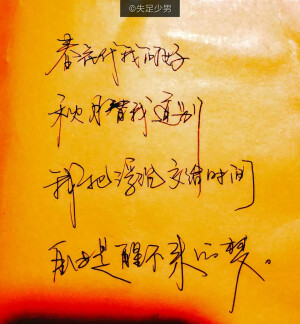 ©失足少男
春衣代我问好
秋月替我道别
我把浮沉交给时间
醒不来的梦。